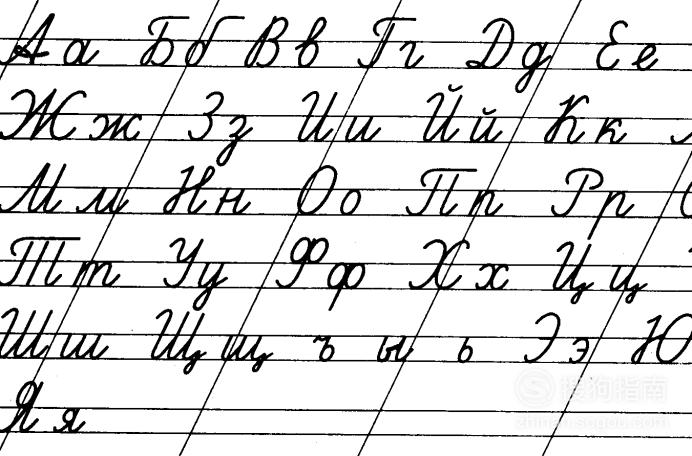 Аа Бб Вв Гг Дд Ее
Жж Зз Ии Йй Кк
Мм Нн Оо Пп Рр
Тт Уу Фф Хх Цц
Шш Щщ ъ ы ь Ээ Ю
Яя
搜狗指南
zhinan.sogou.com